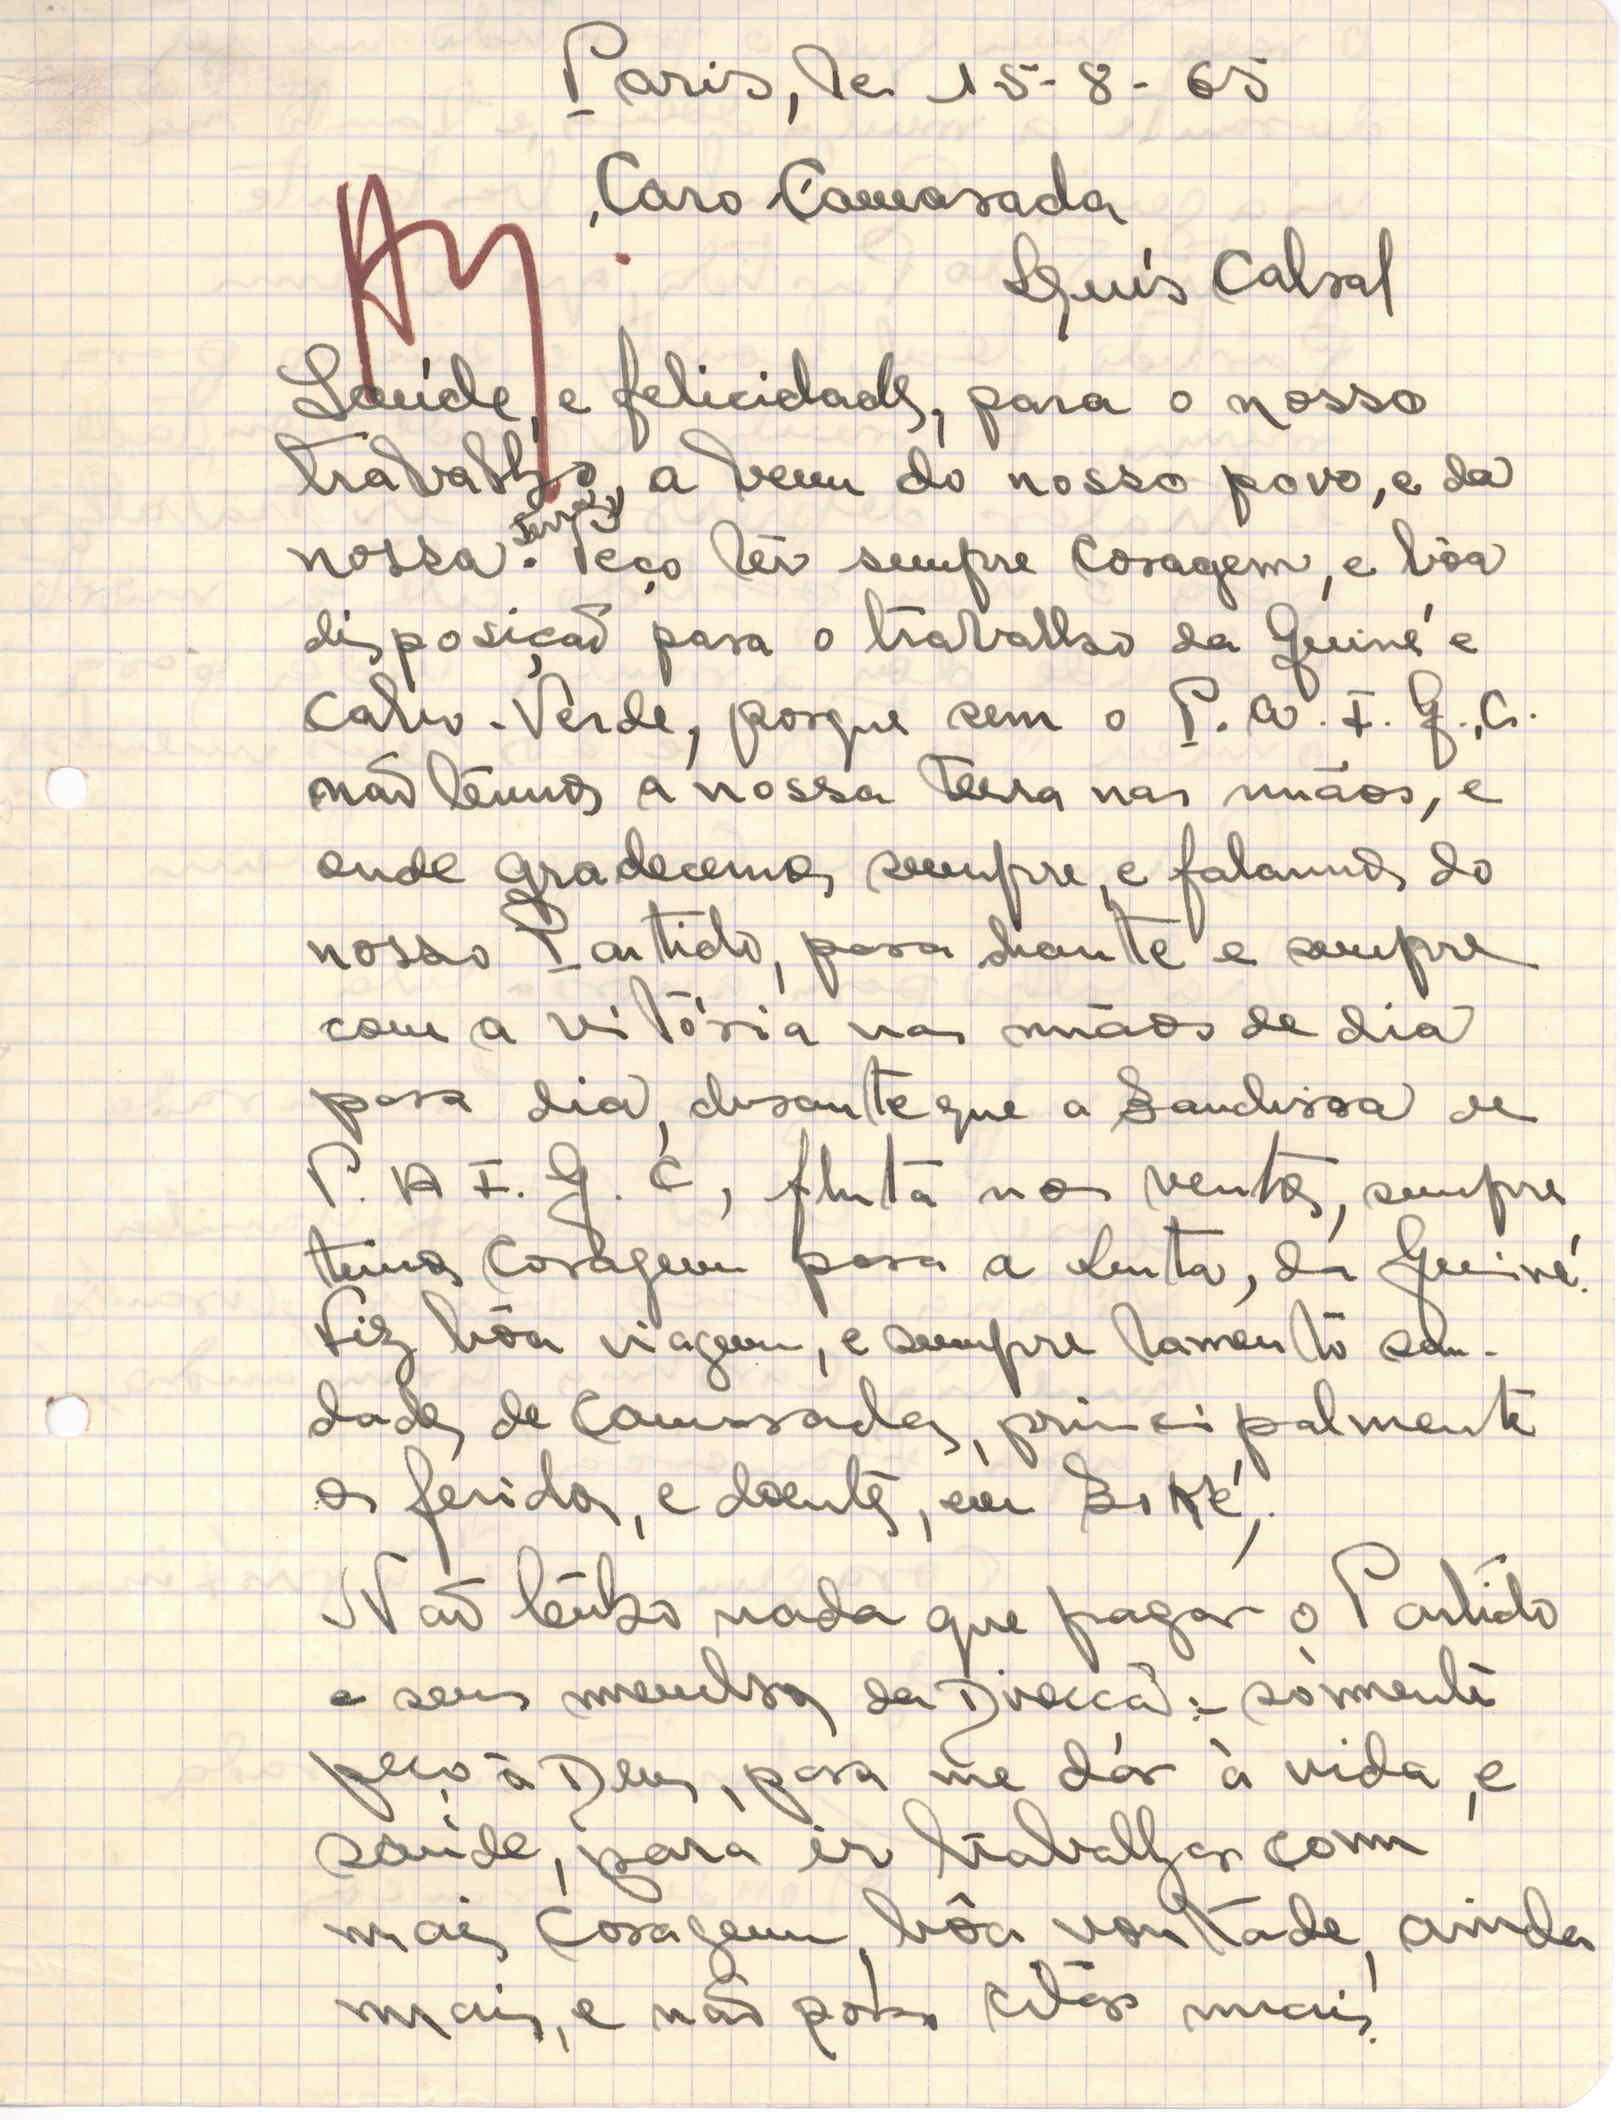 Paris, le 15-8-65
Caro Camarada
Luís Cabral
Saúde, e felicidades, para o nosso
trabalho, a bem do nosso povo, e da
terra
nossa. Peço têr sempre coragem, e bôa
disposição para o trabalho da Guiné e
Cabo-Verde, porque sem o P.A.I.G.C.
não têmos a nossa terra nas mãos, e
onde gradecemos sempre, e falamos do
nosso Partido, para diante e sempre
com a vitória nas mãos de dia
para dia, durante que a Bandeira de
P.A.I.G.C, fluta nos ventos, sempre
temos coragem para a Luta, da Guiné.
Fiz bôa viagem, e sempre lamento sau-
dades de camaradas, principalmente
os feridos, e doentes, em Boké,.
Não tênho nada que pagar o Partido
e seus membros da Direcçã:- sòmente
peço à Deus, para me dár à vida, e
saúde, para ir trabalhar com
mais coragem, bôa vontade, ainda
mais, e não posso citár mais!